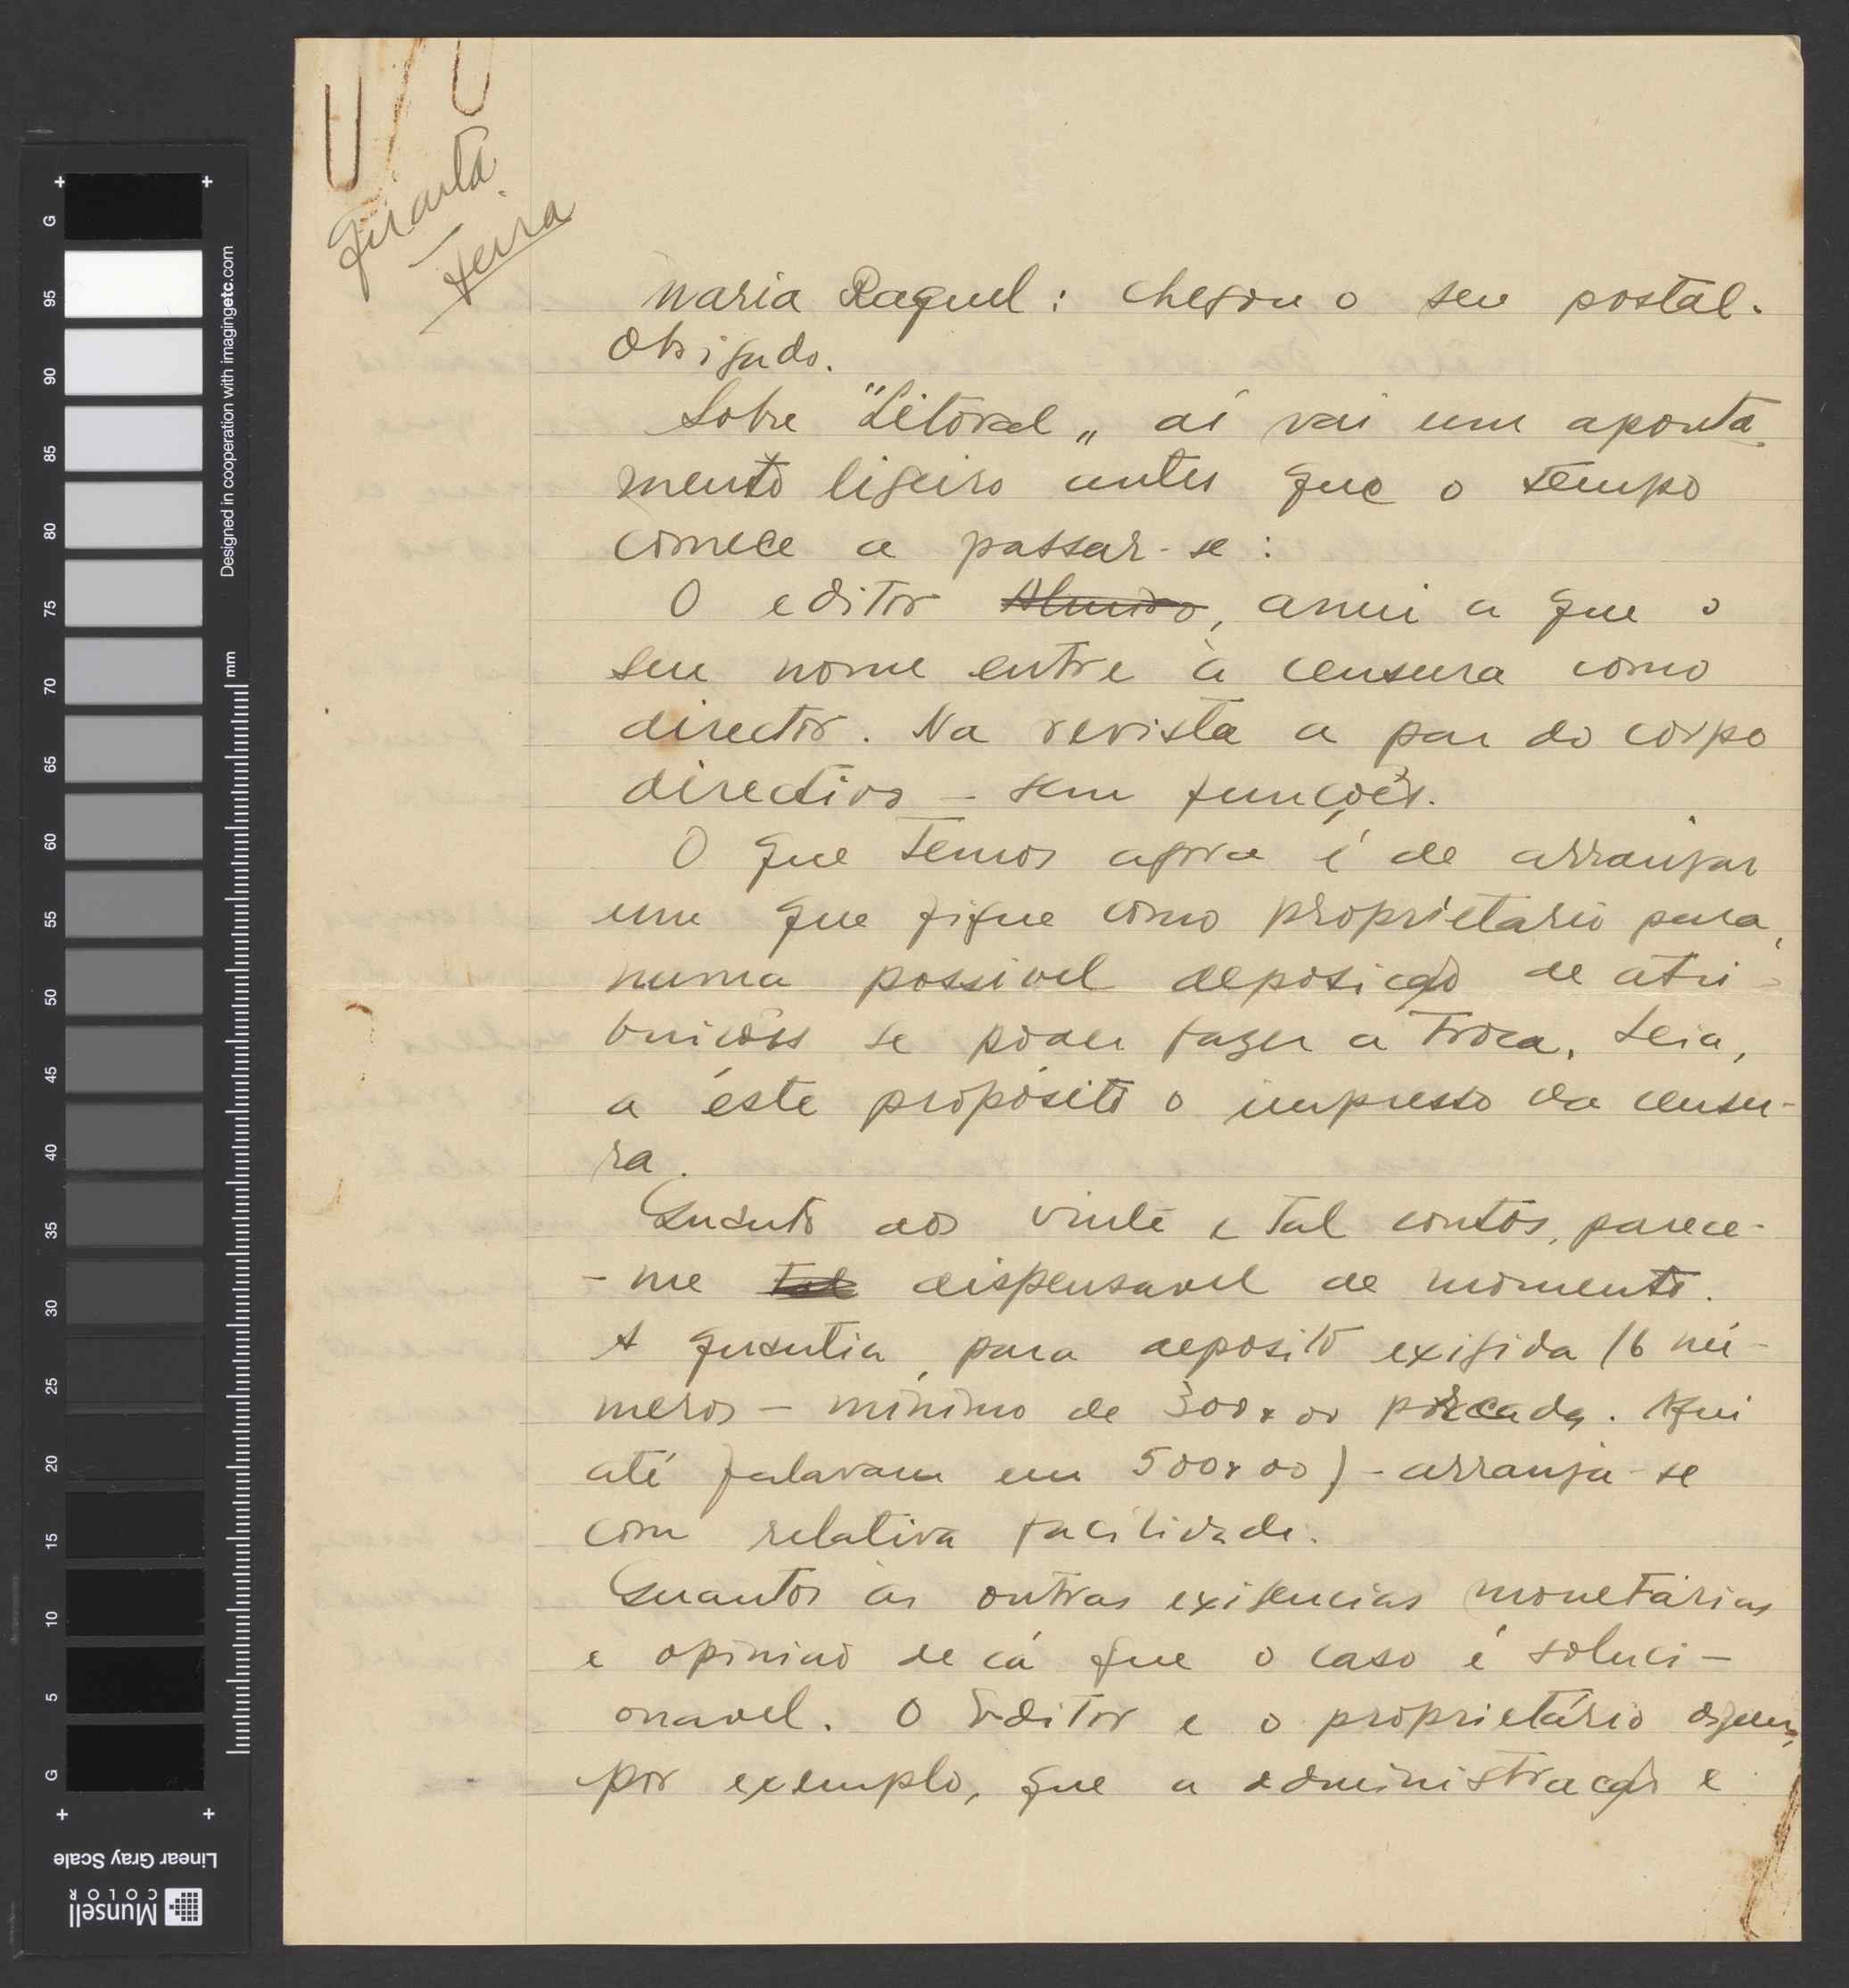 Quarta
-feira
Maria Raquel: chegou o seu postal.
Obrigado.
Sobre "Litoral„ aí vai um aponta
mento ligeiro antes que o tempo
comece a passar-se:
O editor Alvaro, anui a que o
seu nome entre à censura como
director. Na revista a par do corpo
directivo – sem funções.
O que temos agora é de arranjar
um que fique como proprietario para,
numa possivel deposição de atri-
buicões se poder fazer a troca. Leia,
a êste propósito o impresso da censu-
ra.
Quanto aos vinte e tal contos, parece-
-me tal dispensavel de momento.
A quantia, para deposito exigida (6 nú-
meros – minimo de 300$00 por cada. Aqui
até falavam em 500$00) – arranja-se
com relativa facilidade.
Quantos às outras exigencias monetárias
e opinião de cá que o caso é soluci-
onavel. O Editor e o proprietário dizem,
por exemplo, que a administração e
Designed in cooperation with imagingetc.com
mm
G
95
90
85
80
75
70
65
60
55
50
45
40
35
30
25
20
15
10
5
G
Linear Gray Scale
Munsell
COLOR